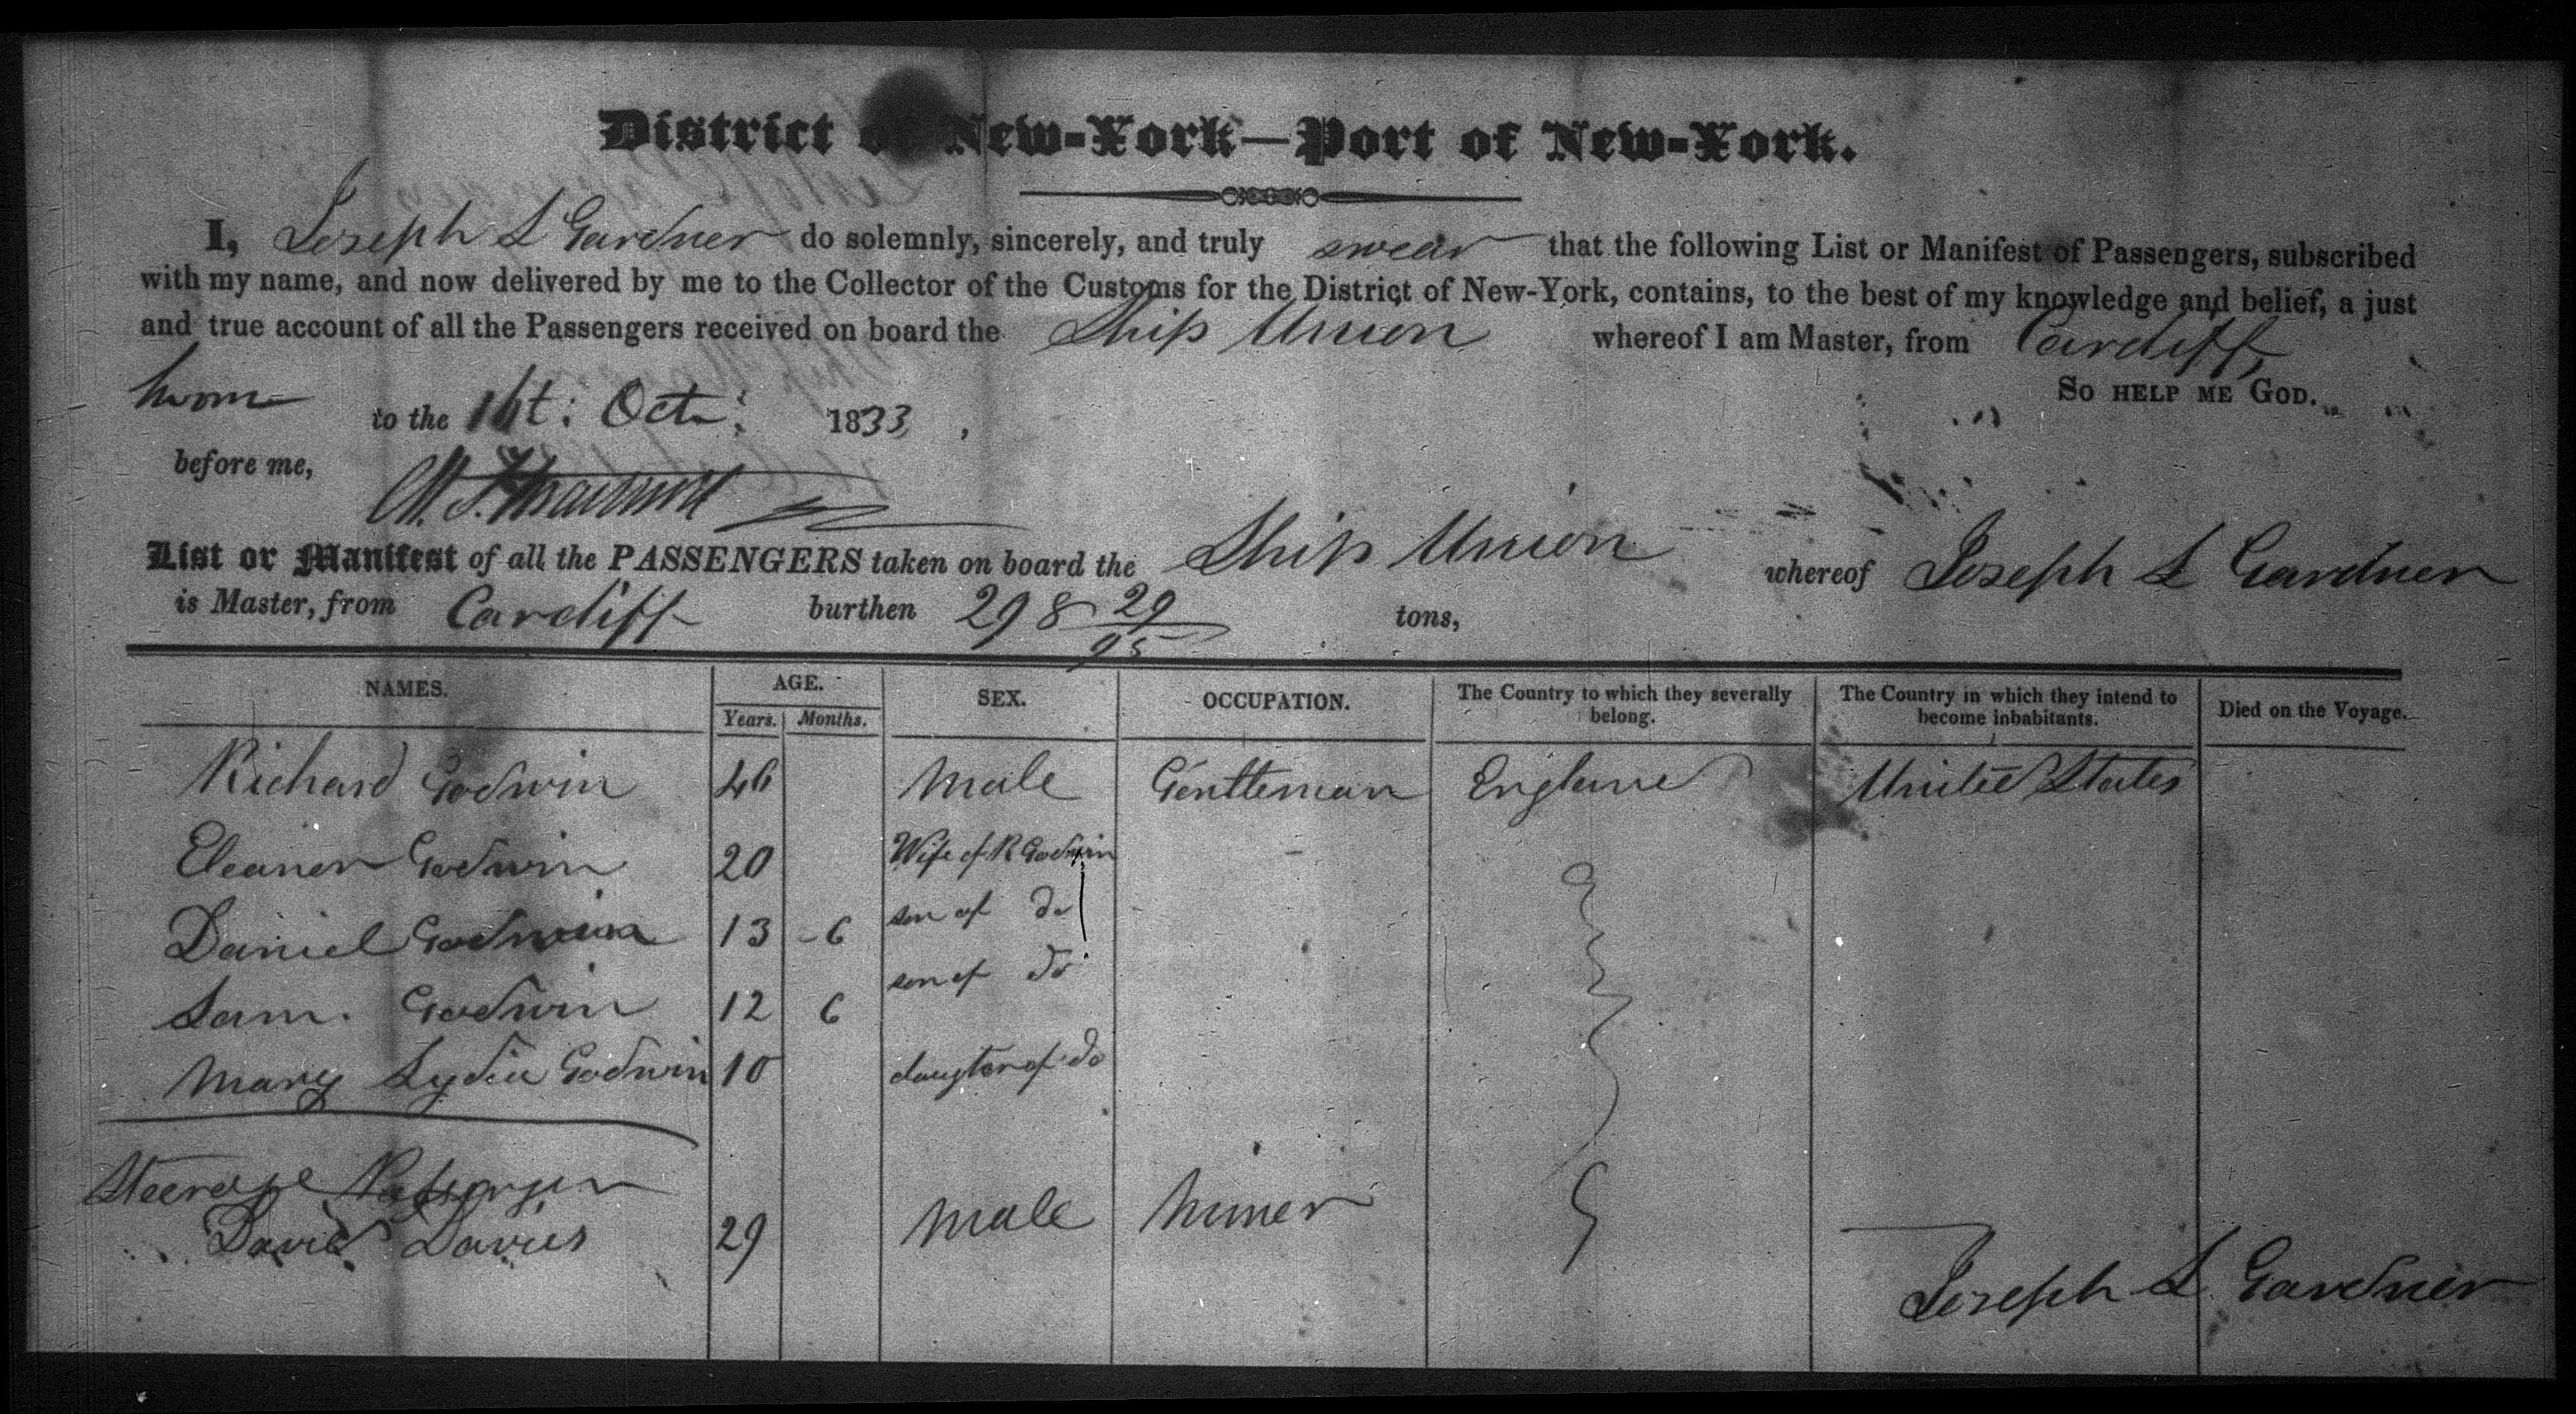 District of New-York—Port of New-York.
I, Joseph L Gardner do solemnly, sincerely, and truly swear that the following List or Manifest of Passengers, subscribed
with my name, and now delivered by me to the Collector of the Customs for the District of New-York, contains, to the best of my knowledge and belief, a just
and true account of all the Passengers received on board the Ship Union whereof I am Master, from Cardiff,
SO HELP ME GOD.
Sworn to the Oct: 1833,
before me,
List or Manifest of all the PASSENGERS taken on board the Ship Union whereof Joseph L Gardner
is Master, from Cardiff burthen 298 29/95 tons,
NAMES. AGE. SEX. OCCUPATION. The Country to which they severally belong. The Country in which they intend to become inhabitants. Died on the Voyage.
Years. Months.
Richard Godwin 46 Male Gentleman England United States
Eleaner Godwin 20 Wife of R Godwin
Daniel Godwin 13 - 6 son of do
Sam. Godwin 12 6 son of do
Mary Lydia Godwin 10 daugter of do
Steerage Passenger
David Davies 29 Male Miner
Joseph L Gardner